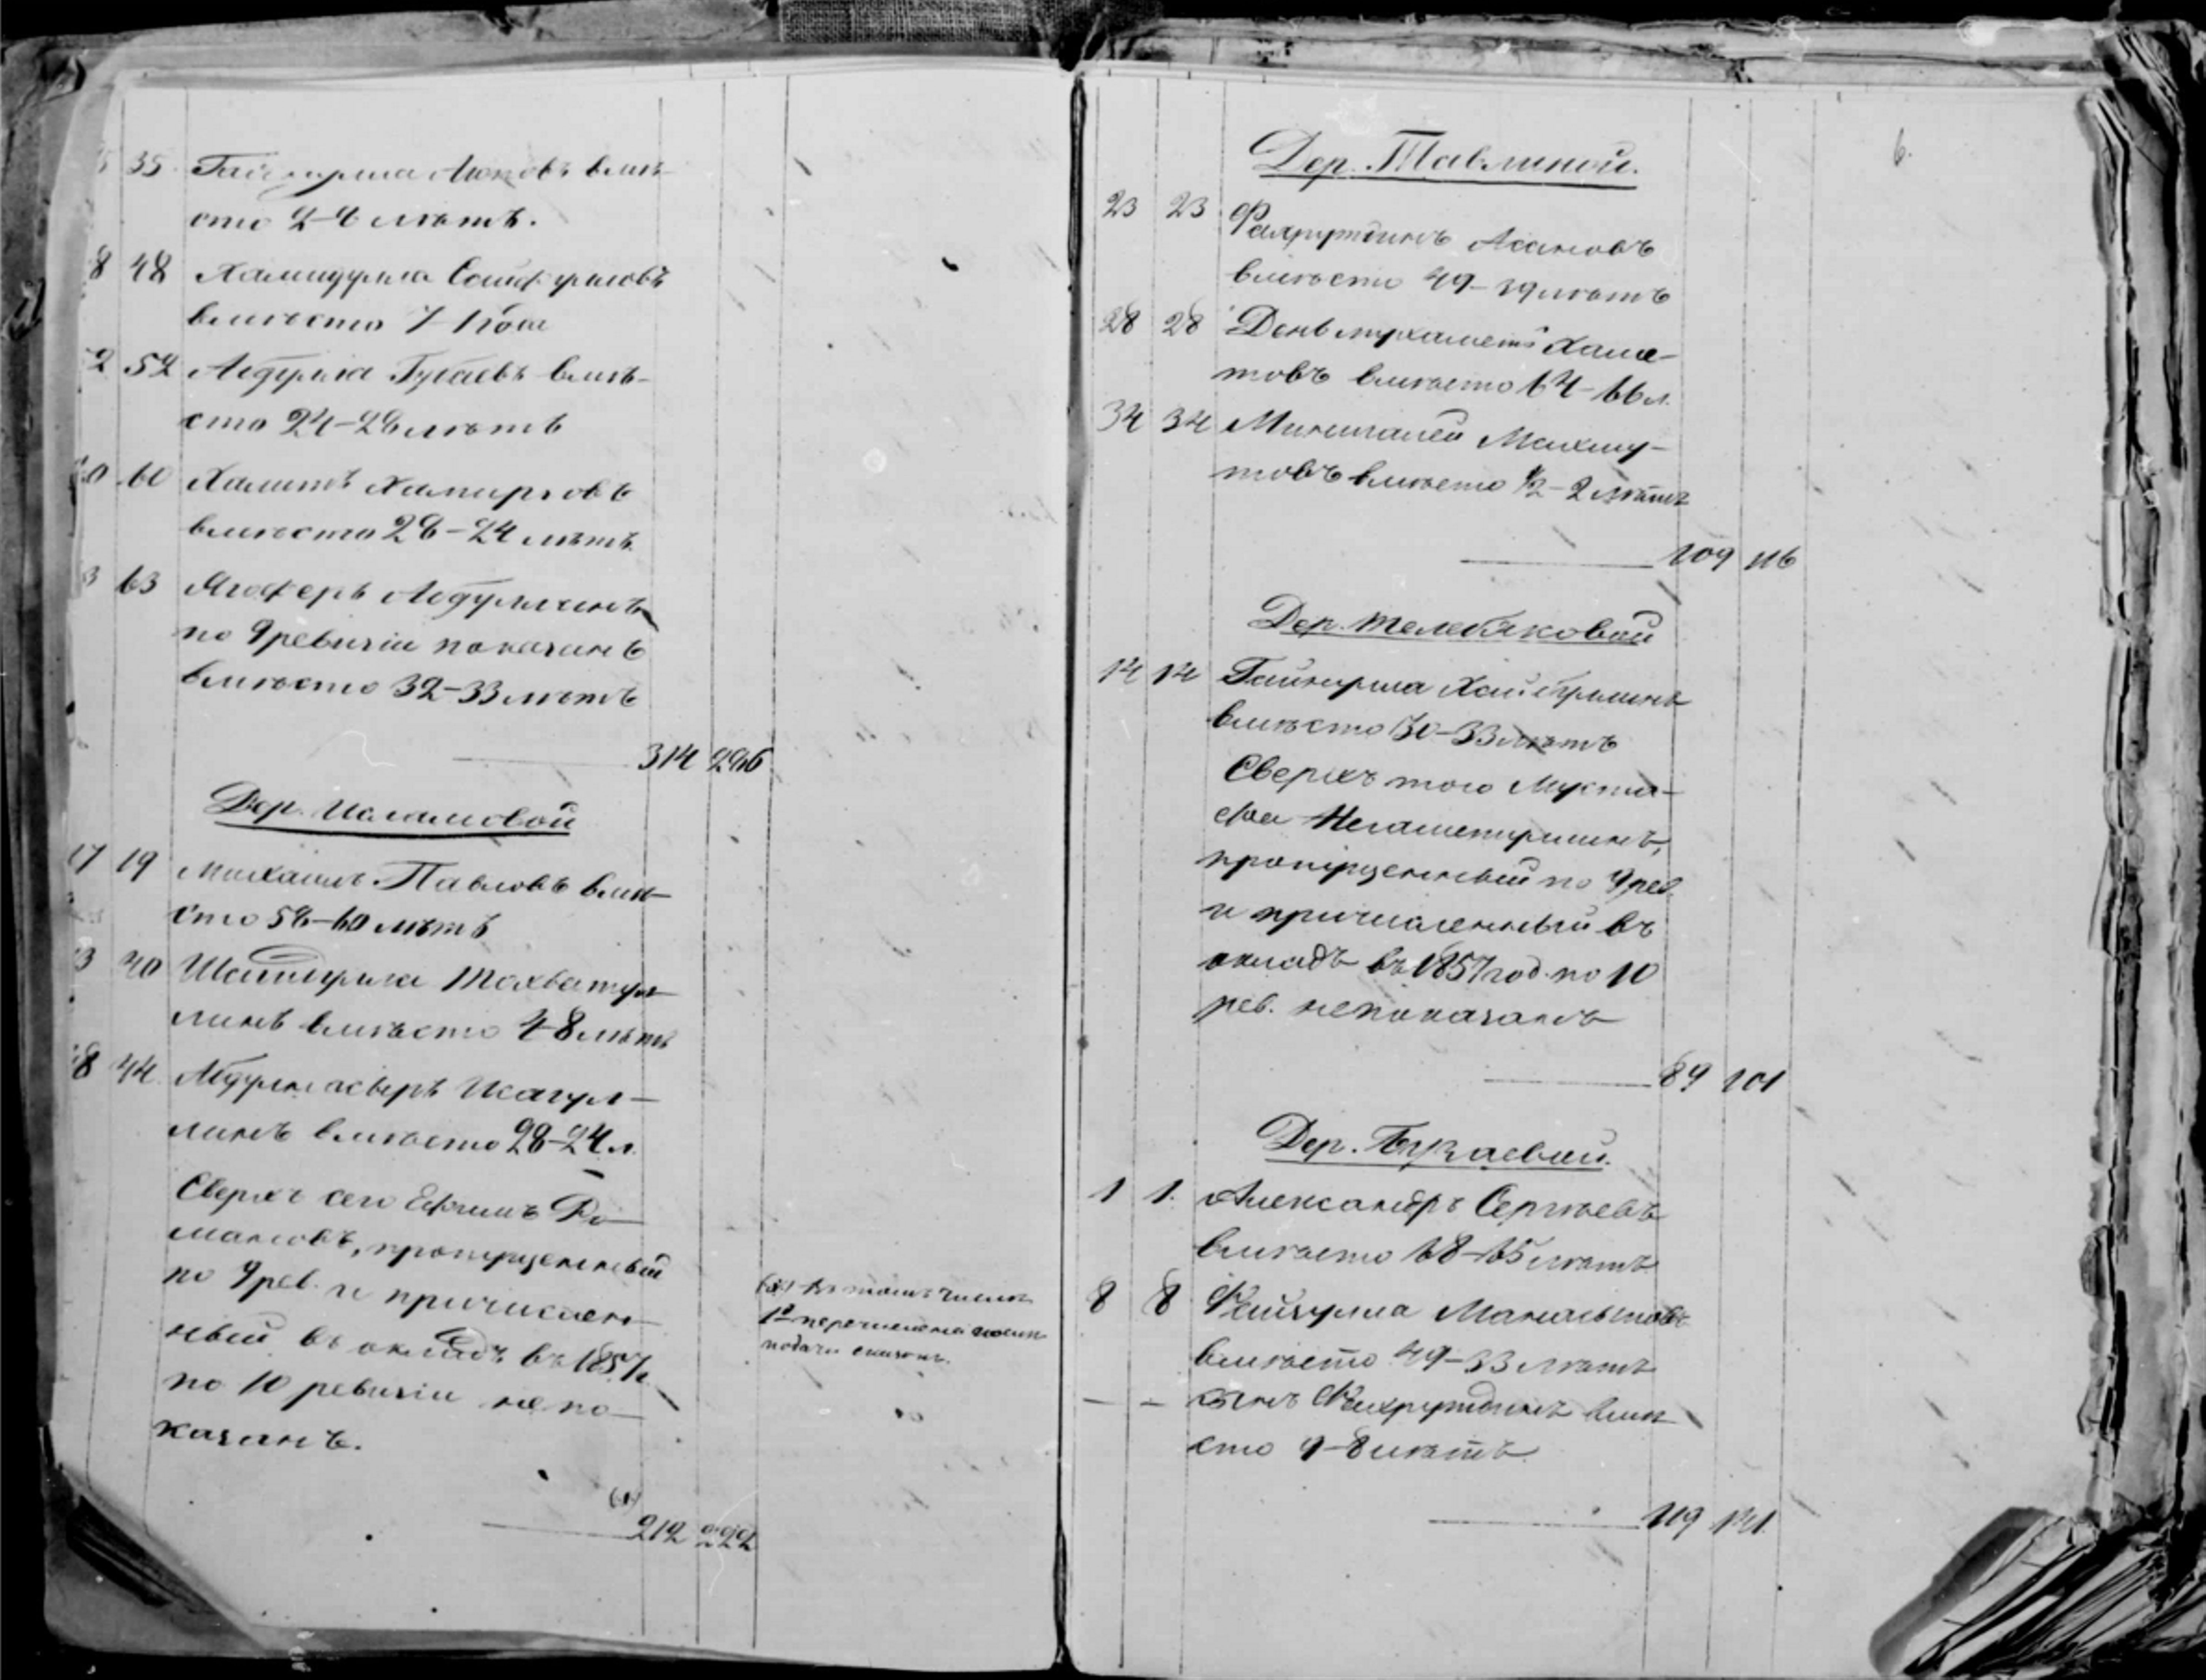 35 вмѣ-
сто 2-4 лѣтъ.
8 48 Хамидулла
вмѣсто 7-1 года
2 52 Абдулла Губаевъ вмѣ-
сто 24-26 лѣтъ
60 Халитъ
вмѣсто 28-24 лѣтъ
3 63 Ягоферъ Абдуллинъ
по 9 ревизіи показанъ
вмѣсто 32-33 лѣтъ
314 296
Дер. Исламовой
17 19 Михаилъ Павловъ вмѣ-
сто 58-60 лѣтъ
3 40 Тохватул-
линъ вмѣсто 4-8 лѣтъ
8 44 Исагул-
линъ вмѣсто 28-24 л.
Сверхъ сего Ефимъ Ро-
мановъ, пропущенный
по 9 рев. и причислен-
ный въ окладъ въ 1857 г.
по 10 ревизіи не по-
казанъ.
въ томъ числѣ
1 перечисленный
подачи сказокъ.
212 222
6.
Дер. Тавлиной.
23 23 Фахрутдинъ Асановъ
вмѣсто 49-39 лѣтъ
28 28 Девлетмухаметъ Хаме-
товъ вмѣсто 64-66 л.
34 34 Минигалей Махму-
товъ вмѣсто ½-2 лѣтъ
109 116
Дер. Телебяковой
14 14 Гайнулла Хайбуллинъ
вмѣсто 30-33 лѣтъ
Сверхъ того Муста-
фа Негаметуллинъ,
пропущенный по 9 рев.
и причисленный въ
окладъ въ 1857 год. по 10
рев. не показанъ
89 101
Дер. Букаевой.
1 1. Александръ Сергѣевъ
вмѣсто 68-65 лѣтъ.
8 8 Фейзулла
вмѣсто 49-33 лѣтъ
— — сынъ Фахрутдинъ вмѣ-
сто 9-8 лѣтъ
119 141.